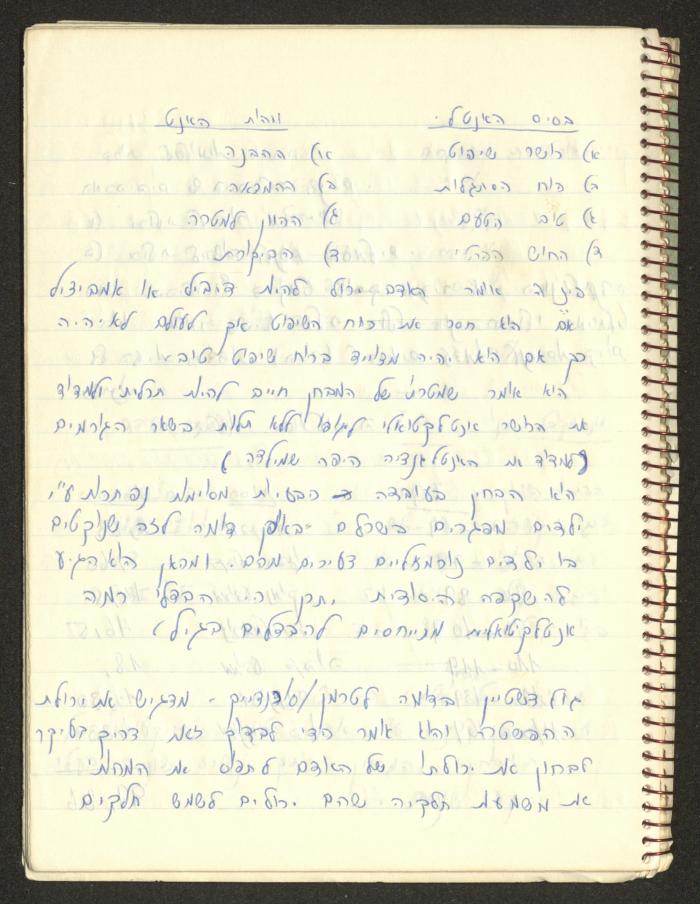 בסיס האנטל. מהות האנט
א) כושר שיפוט א) ההבנה
ב) כוח הסתגלות ב) ההמצאה
ג) טיב הטעם ג) הכוון למטרה
ד) החוש ד) הביקורת
בינה אומר האדם יכול להיות דיביל או אמביציל
אם הוא חסר את כוח השיפוט אך לעולם לא יהיה
כך אם הוא יהיה מצוייד בכוח שיפוט טוב.
הוא אומר שמטרתו של המבחן חיים להיות תכליתי ולמדוד
את הכושר אינטלקטואלי לגופו ללא תלות בשאר הגורמים
(למדוד את האינטליגנציה היפה שמילדה)
הוא הבחין בעובדה כבעיות מסוימות נפתרות ע"י
ילדים מפגרים בשכלם באופן דומה לזה שנוקטים
בו ילדים נורמליים צעירים מהם. ומכאן הוא הגיע
להשקפה היסודית יתכן הבדלי רמה
אנטלקטואלית מתייחסים להבדלים בגיל)
גולדשטיין בדומה לטרמן - מדגיש את יכולת
ההפשטה והוא אומר כדי לבדוק זאת צריך בעיקר
לבחון את יכולתו של האדם לתפוס את המהות
את משמעות שהם יכולים לשמש חלקים